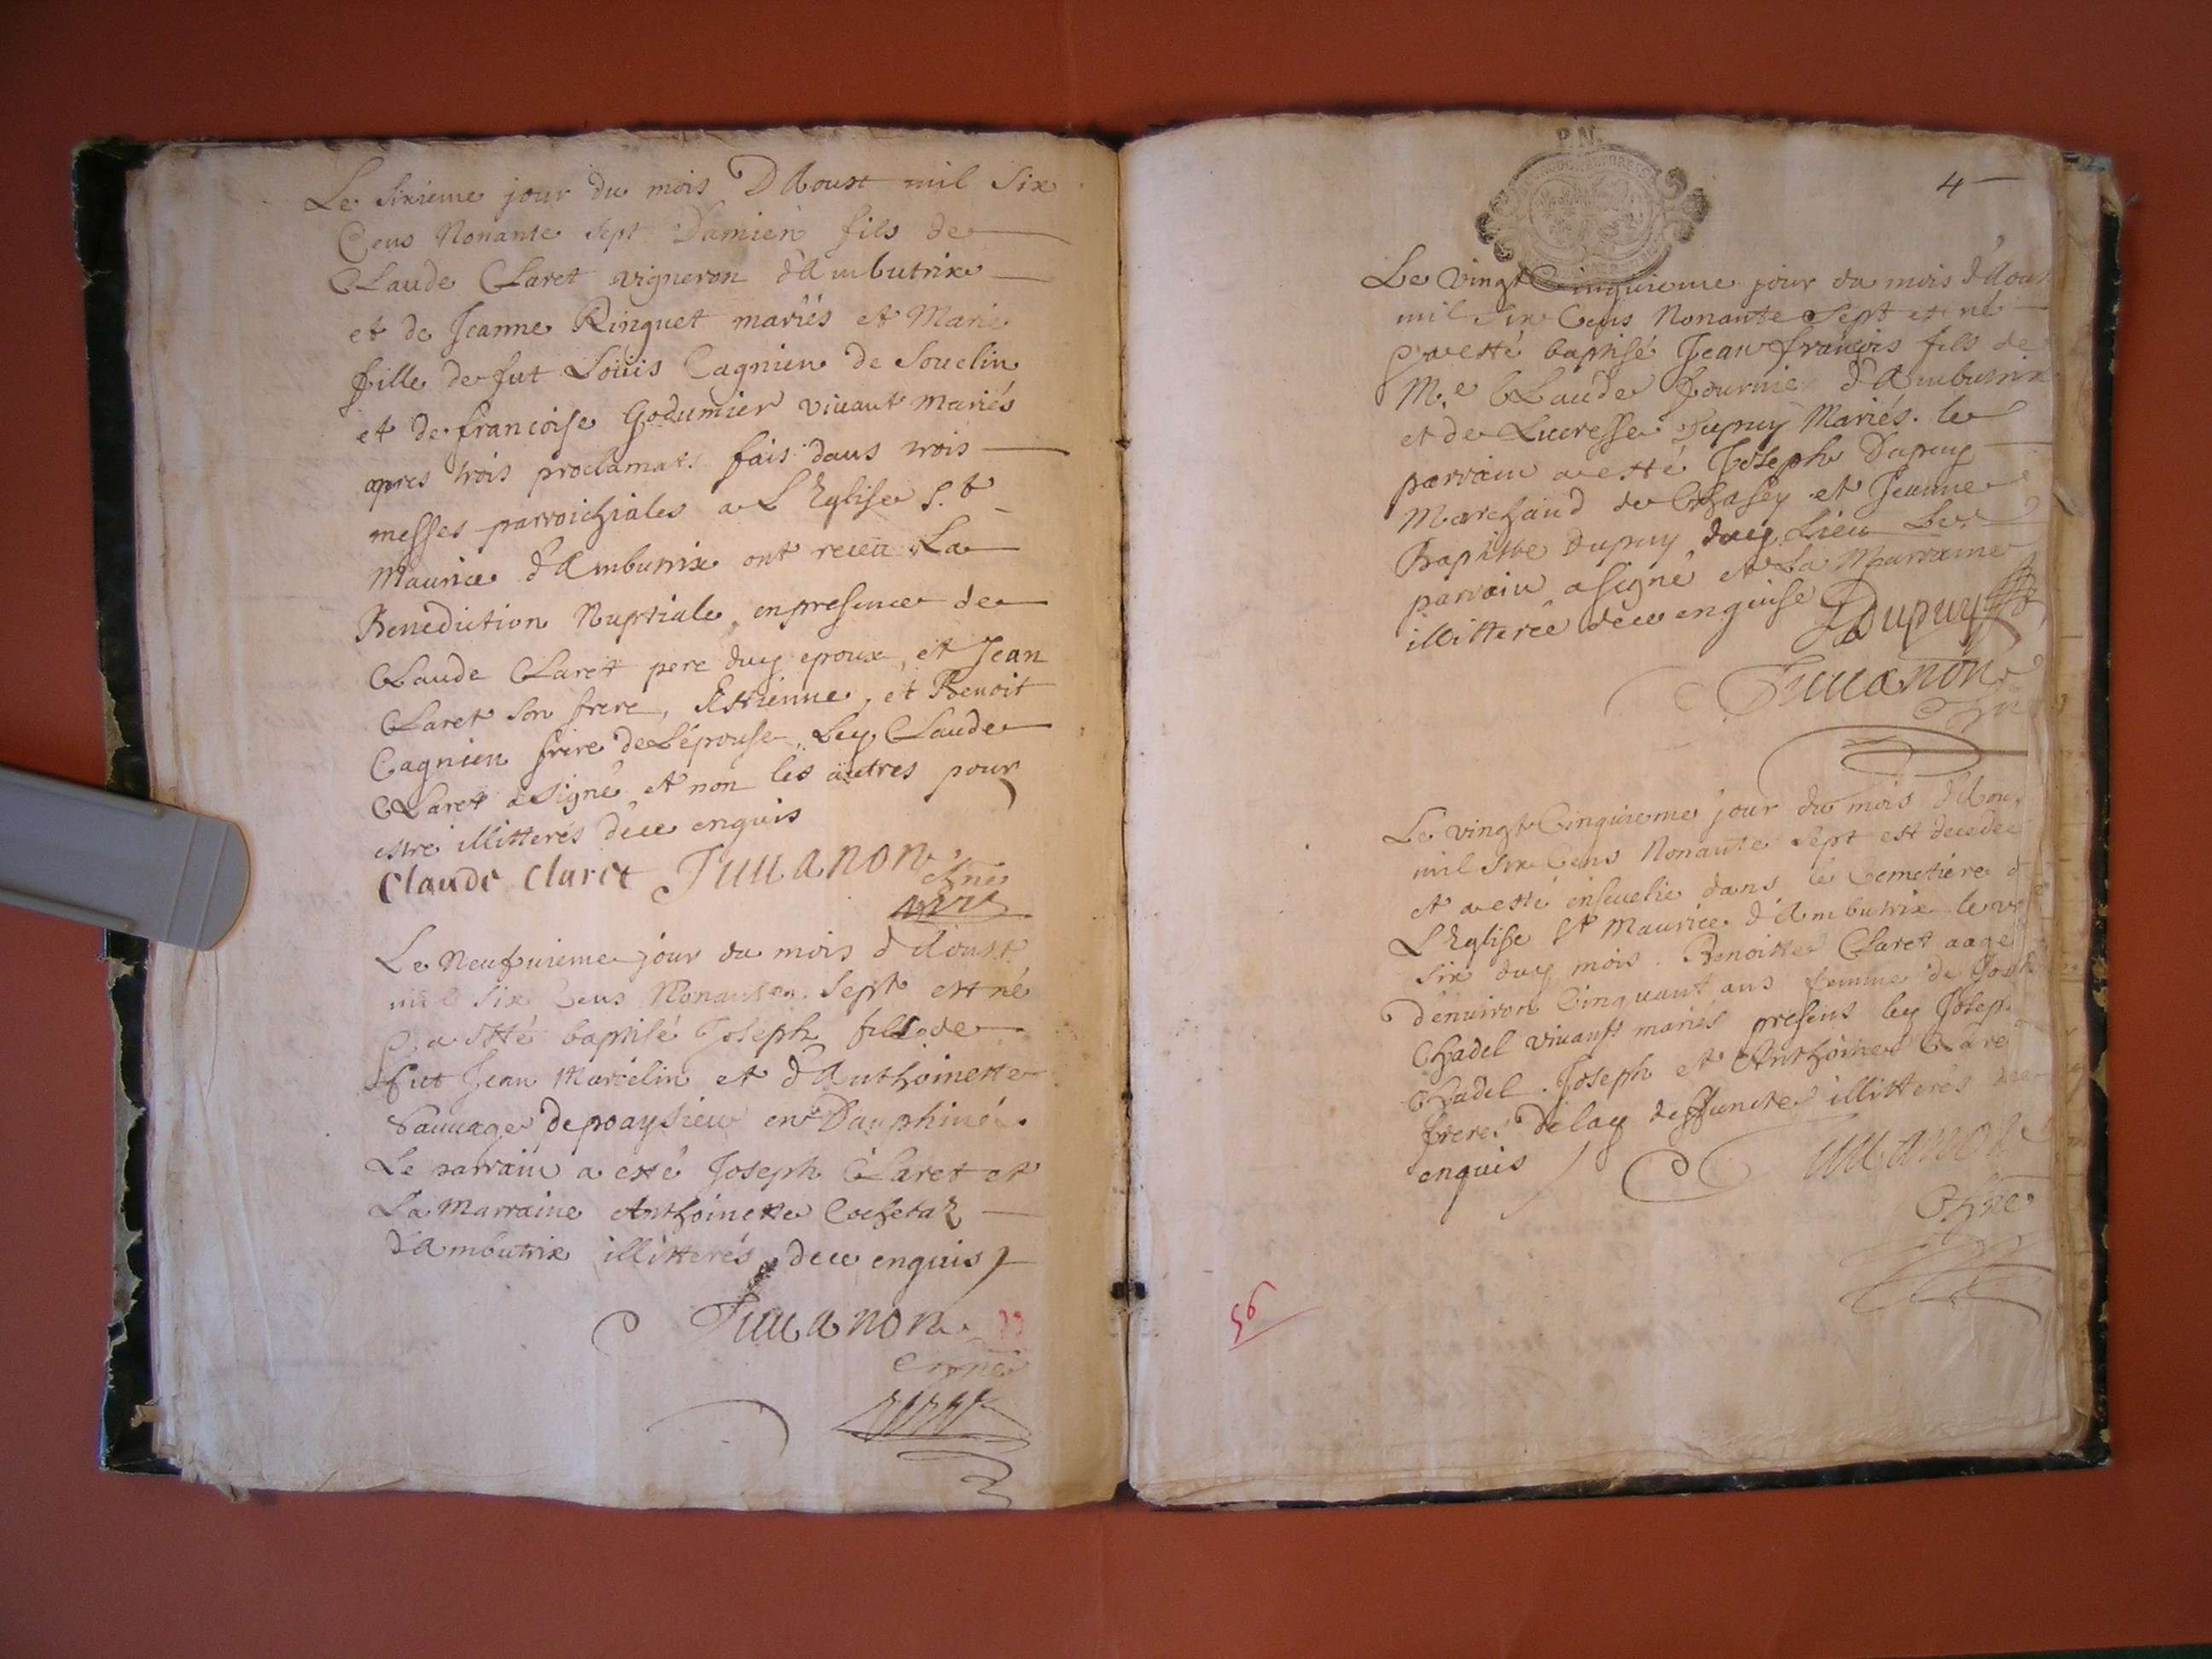 Le sixieme jour du mois D Aoust mil six
Cens Nonante sept Damien fils de
Claude Claret vigneron d'Ambutrix
et de Jeanne Ringuet mariés et Marie
fille de fut Loüis Cagnien de Souclin
et de francoise Godumier vivant mariés
apres trois proclamats fais dans trois
messes parroichiales a L'Eglise S.t
Maurice d'Ambutrix ont receu La
Benediction Nuptiale, en presence de
Claude Claret pere duy epoux, et Jean
Claret son frere, Estienne, et Benoit
Cagnien frere de L'épouse, Ley Claude
Claret a signé et non les autres pour
estre illitterés dece enquis
Claude Claret Juuanon
Le Neufuieme jour du mois d'Aoust
mil six Cens Nonante Sept est né
a esté baptisé Joseph fils de
fut Jean Marcelin et d'Anthoinette
Sauuage de poaysieu en Dauphiné.
Le parrain a esté Joseph Claret et
La Marraine Anthoinette Cochetaz
d'Ambutrix illitterés dece enquis
Juuanon
P.N.
4
Le vingt Cinquieme jour du mois d'Aou
mil six Cens Nonante Sept est né
a esté baptisé Jean francois fils de
M.e Claude Fournier d'Ambutrix
et de Lucresse Dupuy Mariés. le
parrain a esté Joseph Dupuy
Marchand de Chasey et Jeanne
Baptiste Dupuy duy Lieu Le
parrain a signé et La Marraine
illitterée dece enquise
JDupuy
Juuanon
Le vingt Cinquieme jour du mois d'Aou
mil six Cens Nonante sept est decedee
et a esté enseuelie dans le Cemetiere d
L'Eglise St Maurice d'Ambutrix le vingt
six duy mois. Benoitte Claret aagee
d'enuiron Cinquant ans femme de Joseph
Chadel vivants mariés presens ley Joseph
Chadel. Joseph et Anthoine Clare
freres delay deffuncte illitterés dece
enquis
Juuanon
56